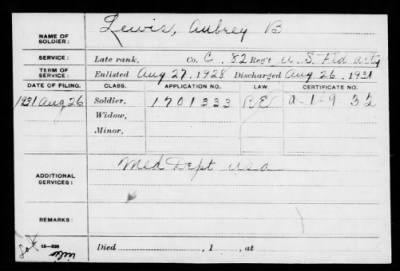 NAME OF SOLDIER: Lewis, Aubrey B
SERVICE: Late rank, Co. C, 82 Reg't U. S. Fld Arty
TERM OF SERVICE: Enlisted Aug 27, 1928 Discharged Aug 26, 1931
DATE OF FILING. CLASS. APPLICATION NO. LAW. CERTIFICATE NO.
1931 Aug 26 Soldier, 1701333
Widow,
Minor,
ADDITIONAL SERVICES: Med Dept USA
REMARKS:
Died , 1 , at